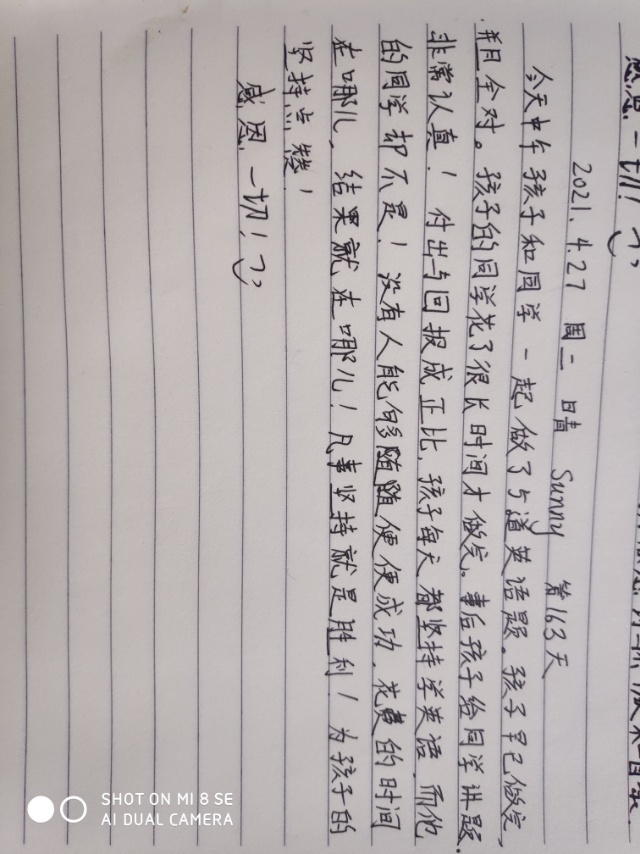 感恩一切！
2021.4.27 周二 晴 Sunny 第163天
今天中午孩子和同学一起做了5道英语题。孩子早已做完，
并且全对。孩子的同学花了很长时间才做完。事后孩子给同学讲题
非常认真！付出与回报成正比，孩子每天都坚持学英语，而他
的同学却不是！没有人能够随随便便成功，花费的时间
在哪儿，结果就在哪儿！凡事坚持就是胜利！为孩子的
坚持点赞！
感恩一切！
SHOT ON MI 8 SE
AI DUAL CAMERA